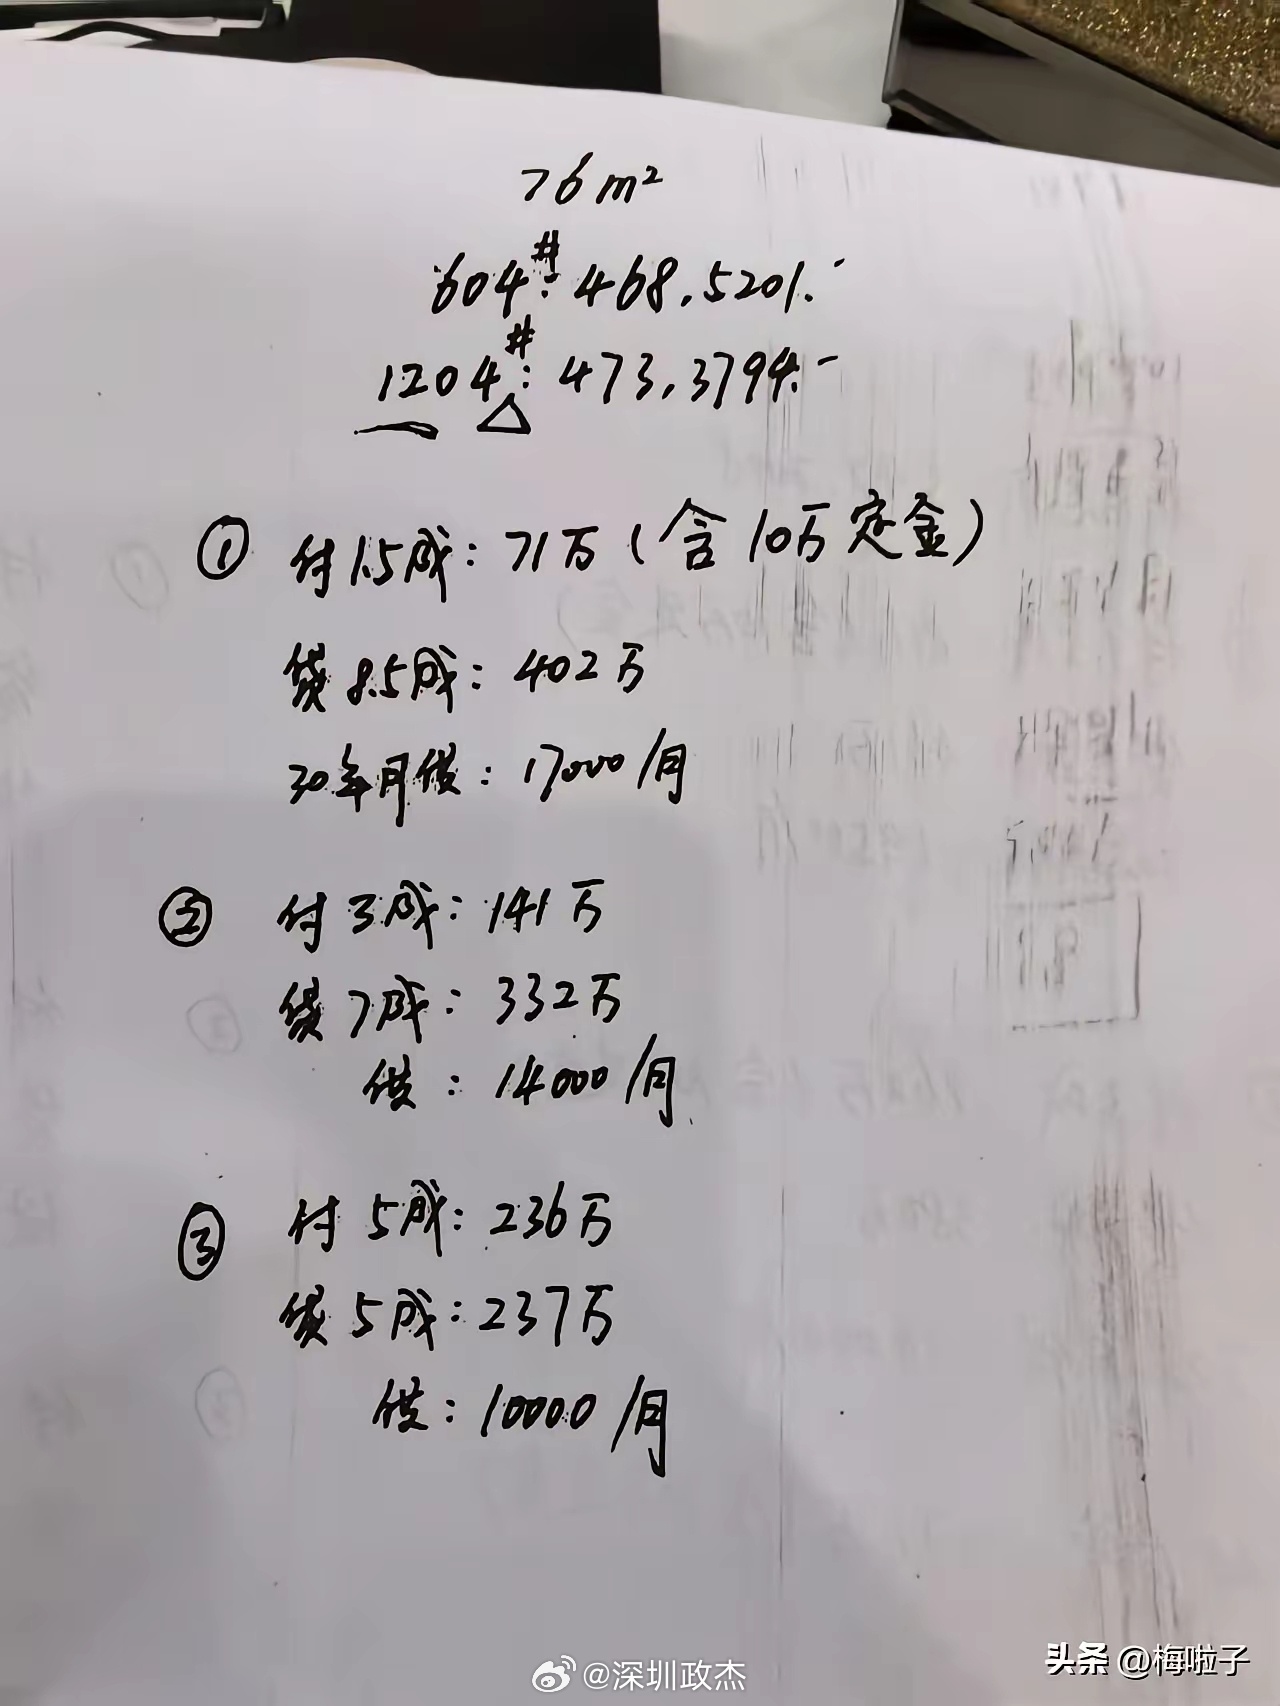 76m²
604#: 468.5201.-
1204#: 473.3794.-
① 付1.5成: 71万(含10万定金)
贷8.5成: 402万
30年月供: 17000/月
② 付3成: 141万
贷7成: 332万
供: 14000/月
③ 付5成: 236万
贷5成: 237万
供: 10000/月
@深圳政杰
头条 @梅啦子